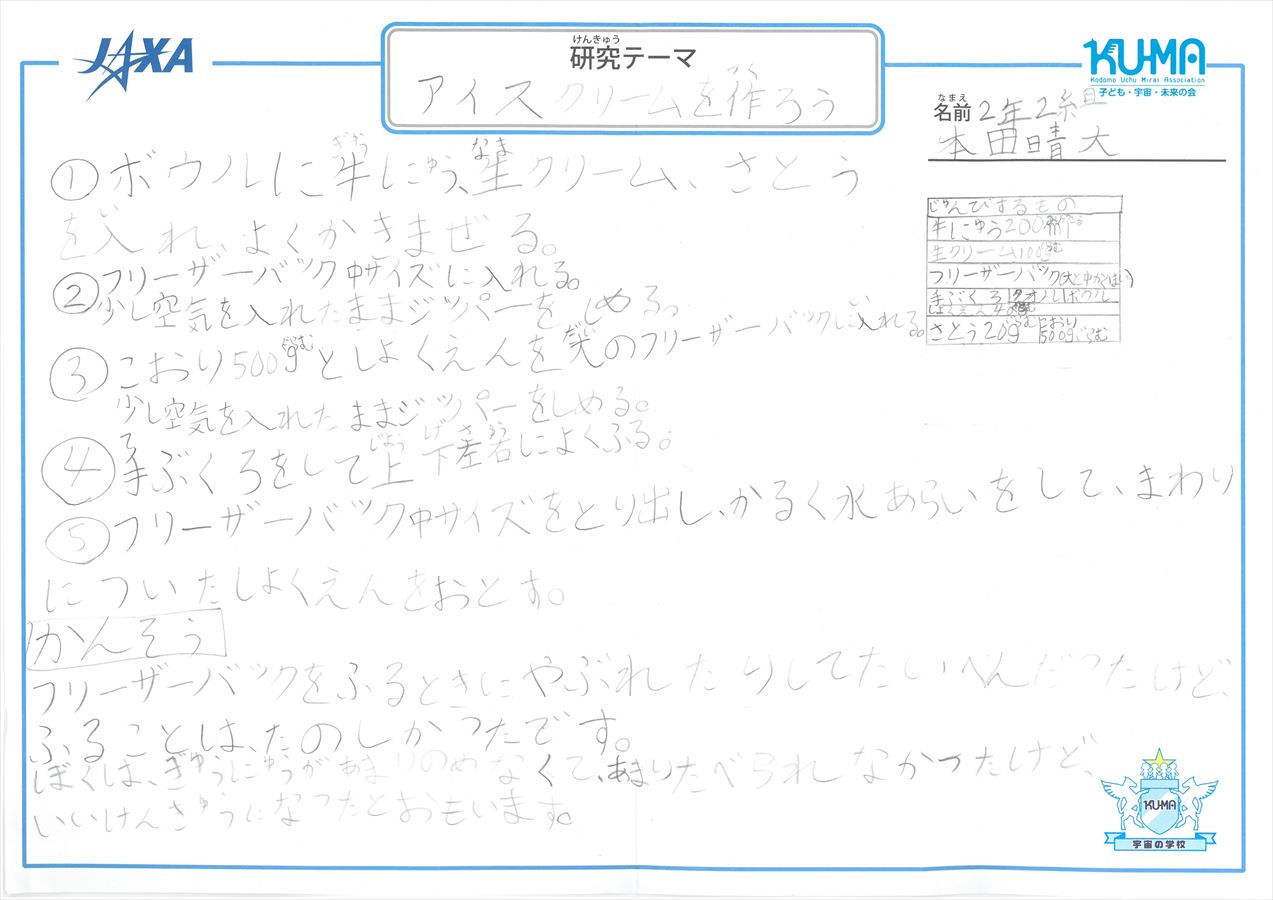 JAXA
けんきゅう
研究テーマ
つく
アイスクリームを作ろう
KUMA
Kodomo Uchu Mirai Association
子ども・宇宙・未来の会
なまえ
名前 2年2組
本田晴大
①ボウルに牛にゅう、生クリーム、さとう
を入れ、よくかきまぜる。
②フリーザーバック中サイズに入れる。
少し空気を入れたままジッパーをしめる。
③こおり500gとしょくえんを大のフリーザーバックに入れる。
少し空気を入れたままジッパーをしめる。
④手ぶくろをして上下左右によくふる。
⑤フリーザーバック中サイズをとり出し、かるく水あらいをして、まわり
についたしょくえんをおとす。
かんそう
フリーザーバックをふるときにやぶれたりしてたいへんだったけど、
ふることは、たのしかったです。
ぼくは、ぎゅうにゅうがあまりのめなくて、あまりたべられなかったけど、
いいけんきゅうになったとおもいます。
じゅんびするもの
牛にゅう200
生クリーム100g
フリーザーバック(大と中が
手ぶくろ タオル ボウル
しょくえん
さとう20g こおり500g
KUMA
宇宙の学校